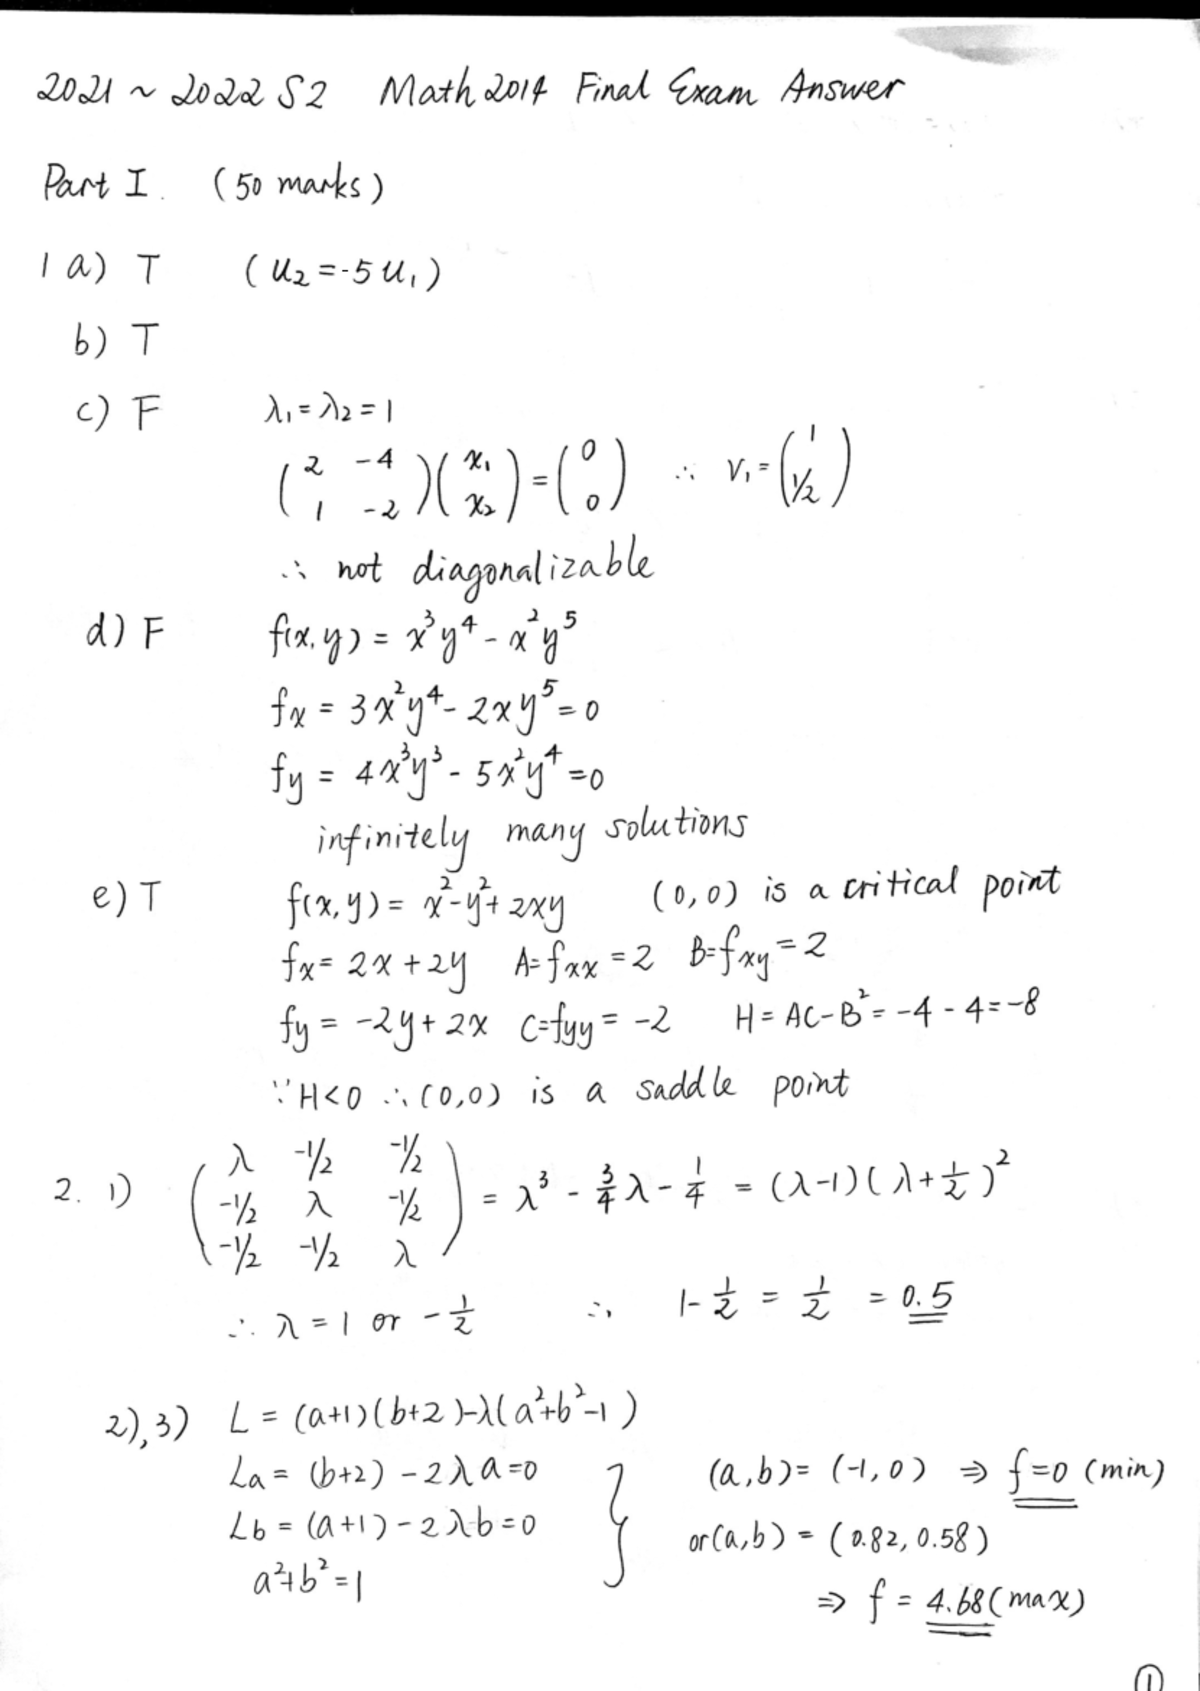 2021 ~ 2022 S2 Math 2014 Final Exam Answer
Part I. (50 marks)
1 a) T (u₂ = -5 u₁)
b) T
c) F λ₁ = λ₂ = 1
(2 -4 / 1 -2)(x₁ / x₂) = (0 / 0) ∴ v₁ = (1 / 1/2)
∴ not diagonalizable
d) F f(x,y) = x³y⁴ - x²y⁵
fx = 3x²y⁴ - 2xy⁵ = 0
fy = 4x³y³ - 5x²y⁴ = 0
infinitely many solutions
e) T f(x,y) = x² - y² + 2xy (0,0) is a critical point
fx = 2x + 2y A = fxx = 2 B = fxy = 2
fy = -2y + 2x C = fyy = -2 H = AC - B² = -4 - 4 = -8
∵ H < 0 ∴ (0,0) is a saddle point
2. 1) (λ -1/2 -1/2 / -1/2 λ -1/2 / -1/2 -1/2 λ) = λ³ - 3/4 λ - 1/4 = (λ-1)(λ+1/2)²
∴ λ = 1 or -1/2 ∴ 1 - 1/2 = 1/2 = 0.5
2), 3) L = (a+1)(b+2) - λ(a²+b²-1)
La = (b+2) - 2λa = 0 (a,b) = (-1,0) ⇒ f = 0 (min)
Lb = (a+1) - 2λb = 0 or (a,b) = (0.82, 0.58)
a² + b² = 1 ⇒ f = 4.68 (max)
①